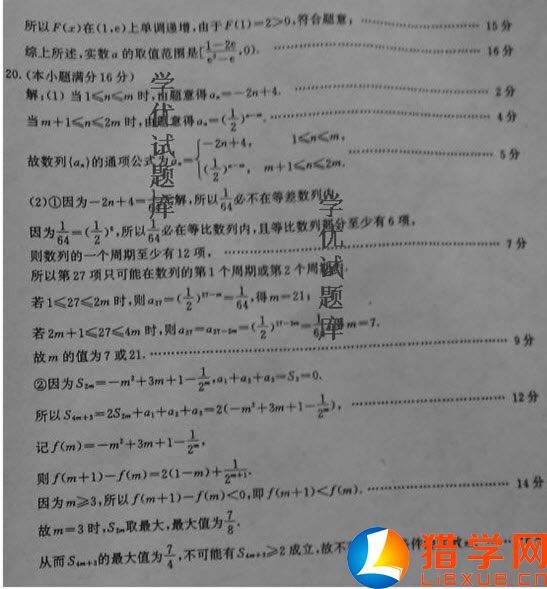 所以 F(x) 在 (1,e) 上单调递增,由于 F(1)=2>0,符合题意; …… 15 分
综上所述,实数 a 的取值范围是[(1-2e)/(e²-e),0). …… 16 分
20.(本小题满分 16 分)
解:(1) 当 1≤n≤m 时,由题意得 aₙ=-2n+4. …… 2 分
当 m+1≤n≤2m 时,由题意得 aₙ=(1/2)ⁿ⁻ᵐ. …… 4 分
故数列{aₙ}的通项公式为 aₙ={ -2n+4, 1≤n≤m,
(1/2)ⁿ⁻ᵐ, m+1≤n≤2m. …… 5 分
(2)①因为 -2n+4= 无解,所以 1/64 必不在等差数列内,
因为 1/64=(1/2)⁶,所以 1/64 必在等比数列内,且等比数列部分至少有 6 项,
则数列的一个周期至少有 12 项, …… 7 分
所以第 27 项只可能在数列的第 1 个周期或第 2 个周期
若 1≤27≤2m 时,则 a₂₇=(1/2)²⁷⁻ᵐ=1/64,得 m=21;
若 2m+1≤27≤4m 时,则 a₂₇=a₂₇₋₂ₘ=(1/2)²⁷⁻³ᵐ= m=7.
故 m 的值为 7 或 21. …… 9 分
②因为 S₂ₘ=-m²+3m+1-1/2ᵐ,a₁+a₂+a₃=S₃=0.
所以 S₄ₘ₊₃=2S₂ₘ+a₁+a₂+a₃=2(-m²+3m+1-1/2ᵐ), …… 12 分
记 f(m)=-m²+3m+1-1/2ᵐ,
则 f(m+1)-f(m)=2(1-m)+1/2ᵐ⁺¹.
因为 m≥3,所以 f(m+1)-f(m)<0,即 f(m+1)<f(m). …… 14 分
故 m=3 时,S₂ₘ取最大,最大值为 7/8.
从而 S₄ₘ₊₃的最大值为 7/4,不可能有 S₄ₘ₊₃≥2 成立,故不
学优试题库
学优试题库
猎学网
Liexue.cn